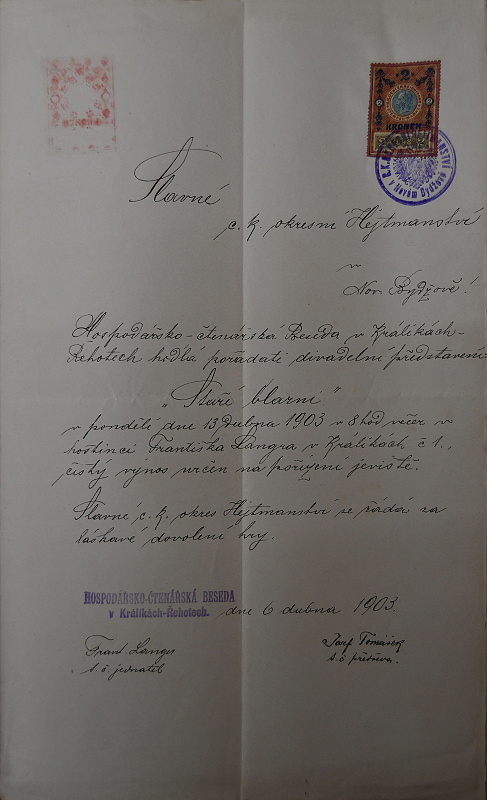 2
KRONEN
Slavné
c. k. okresní Hejtmanství
v
Nov. Bydžově!
v Novém Bydžově
Hospodářsko-čtenářská Beseda v Králíkách-
Řehotech hodlá pořádati divadelní představení:
„Staří blázni“
v pondělí dne 13 dubna 1903 v 8 hod večer v
hostinci Františka Langra v Králíkách č 1.,
čistý výnos určen na pořízení jeviště.
Slavné c. k. okres Hejtmanství se žádá za
láskavé dovolení hry.
HOSPODÁŘSKO-ČTENÁŘSKÁ BESEDA
v Králíkách-Řehotech.
dne 6 dubna 1903.
Frant. Langr
t. č. jednatel
Josef Tomášek
t. č. předseda.